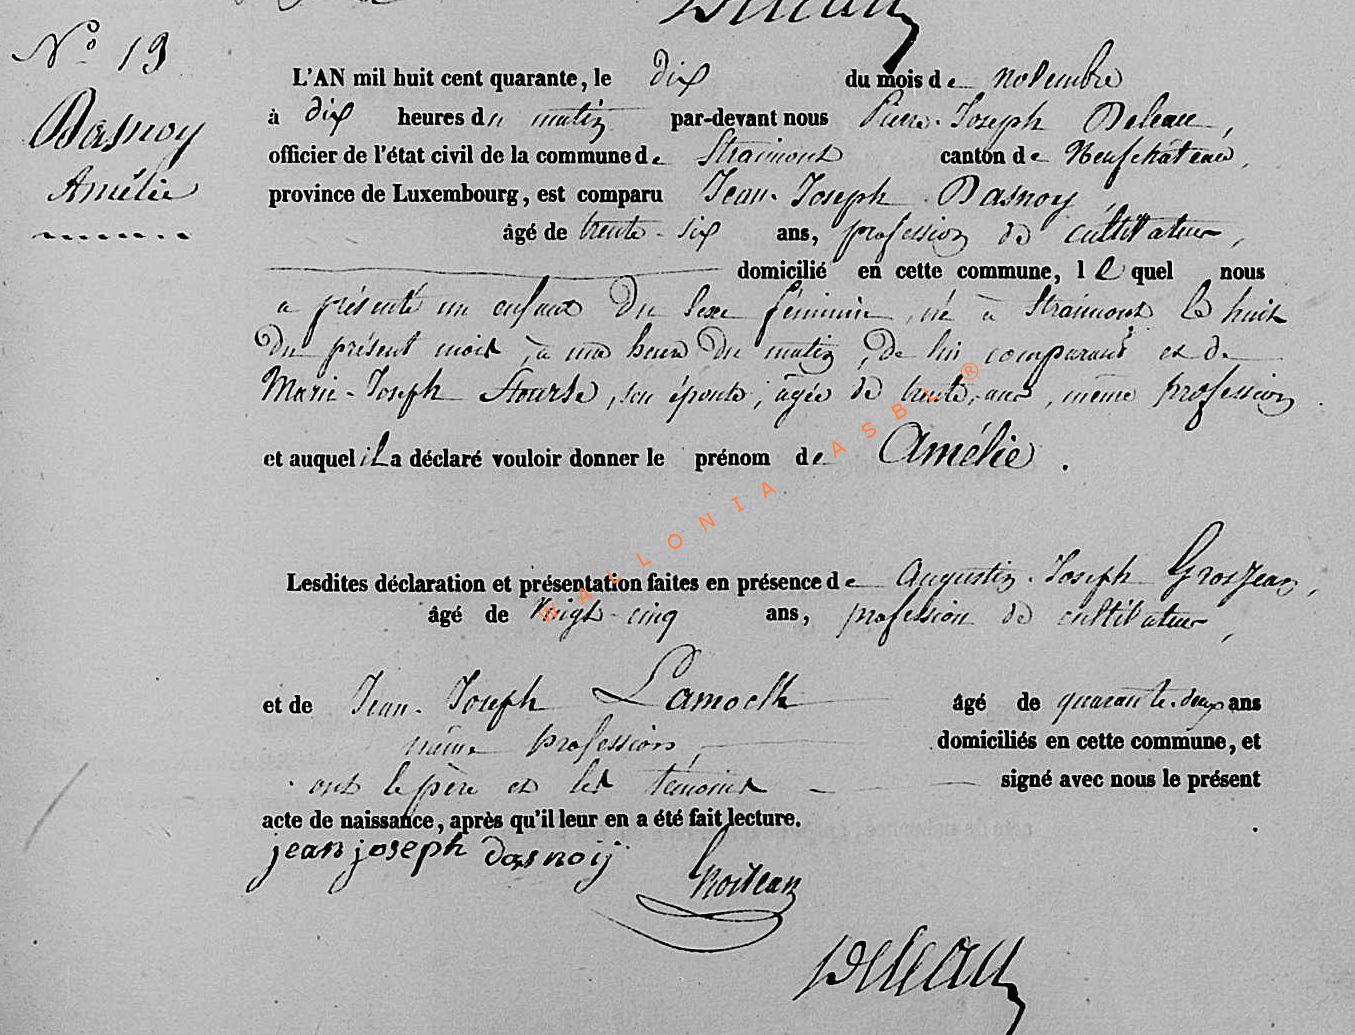 Nº 19
Dasnoy
Amélie
L'AN mil huit cent quarante, le dix du mois de novembre
à dix heures du matin par-devant nous Pierre-Joseph Deleau,
officier de l'état civil de la commune de Straimont canton de Neufchâteau,
province de Luxembourg, est comparu Jean-Joseph Dasnoy,
âgé de trente-six ans, profession de cultivateur,
domicilié en cette commune, lequel nous
a présenté un enfant du sexe féminin, né à Straimont le huit
du présent mois, à une heure du matin, de lui comparant et de
Marie-Joseph Stourbe, son épouse, âgée de trente ans, même profession.
et auquel il a déclaré vouloir donner le prénom de Amélie.
Lesdites déclaration et présentation faites en présence de Augustin-Joseph Grosjean,
âgé de vingt-cinq ans, profession de cultivateur,
et de Jean-Joseph Lamock âgé de quarante-deux ans
même profession, domiciliés en cette commune, et
ont le père et les témoins signé avec nous le présent
acte de naissance, après qu'il leur en a été fait lecture.
jean joseph dasnoij
Grosjean
Deleau
WALLONIA ASBL ®